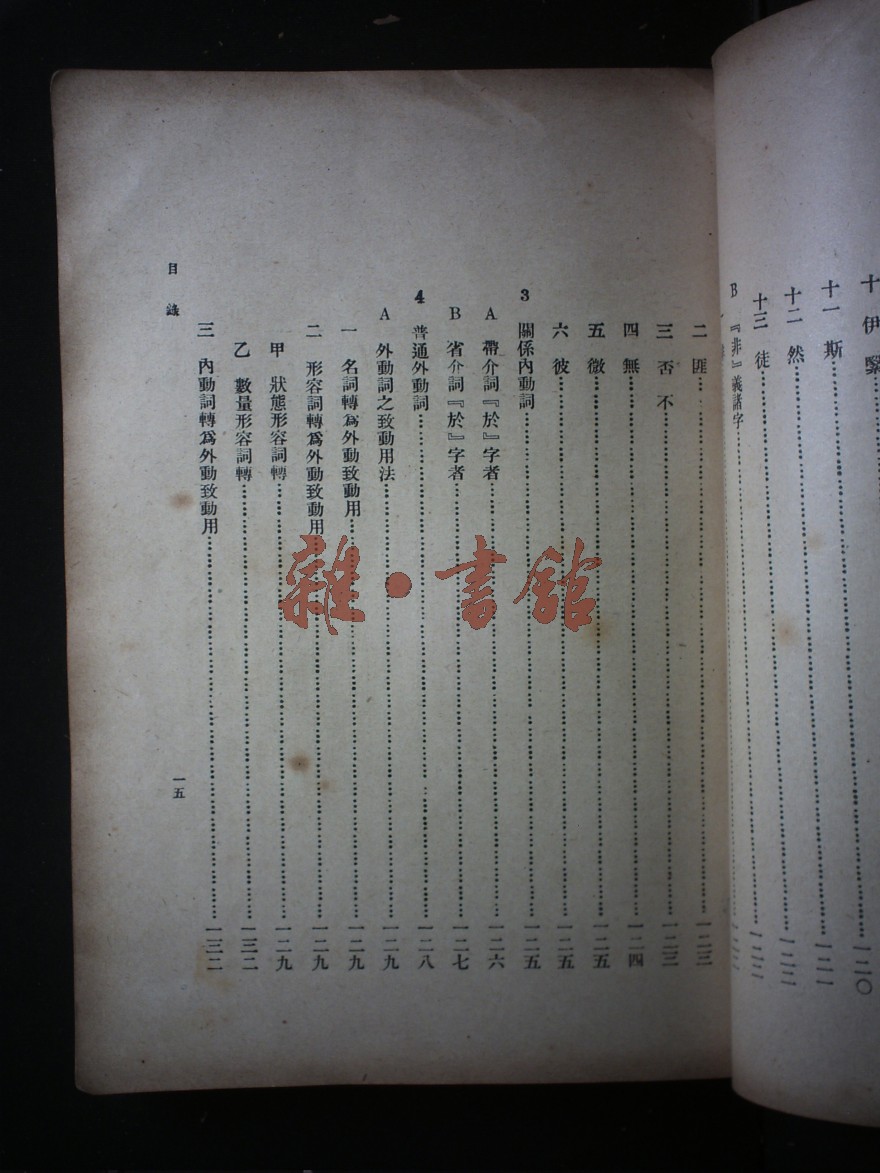 十 伊 緊……一二〇
十一 斯……一二一
十二 然……一二二
十三 徒……一二二
B 『非』義諸字……一二二
二 匪……一二三
三 否 不……一二三
四 無……一二四
五 微……一二五
六 彼……一二五
3 關係內動詞……一二五
A 帶介詞『於』字者……一二六
B 省介詞『於』字者……一二七
4 普通外動詞……一二八
A 外動詞之致動用法……一二九
一 名詞轉爲外動致動用……一二九
二 形容詞轉爲外動致動用……一二九
甲 狀態形容詞轉……一二九
乙 數量形容詞轉……一三二
三 內動詞轉爲外動致動用……一三二
目錄
一五
雜·書館